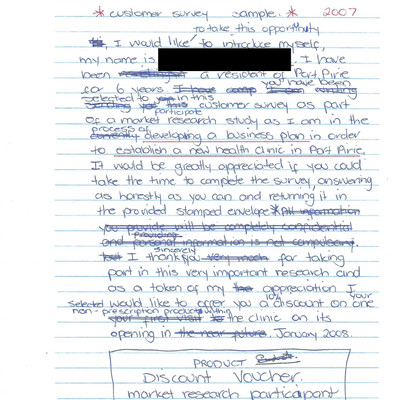 * customer survey sample. * 2007
to take this opportunity
Hi, I would like to introduce myself,
my name is I have
been a resident of Port Pirie
for 6 years. I have you have been
selected to in this
participate
customer survey as part
of a market research study as I am in the
process of
currently developing a business plan in order
to establish a new health clinic in Port Pirie.
It would be greatly appreciated if you could
take the time to complete the survey, answering
as honestly as you can and returning it in
the provided stamped envelope * All information
you provide will be completely confidential
providing
and personal information is not compulsory.
sincerely
but I thank you very much for taking
part in this very important research and
as a token of my appreciation I
selected would like to offer you a 10% discount on one your
non-prescription products within
your first visit to the clinic on its
opening in the near future. January 2008.
PRODUCT
Discount Voucher.
market research participant